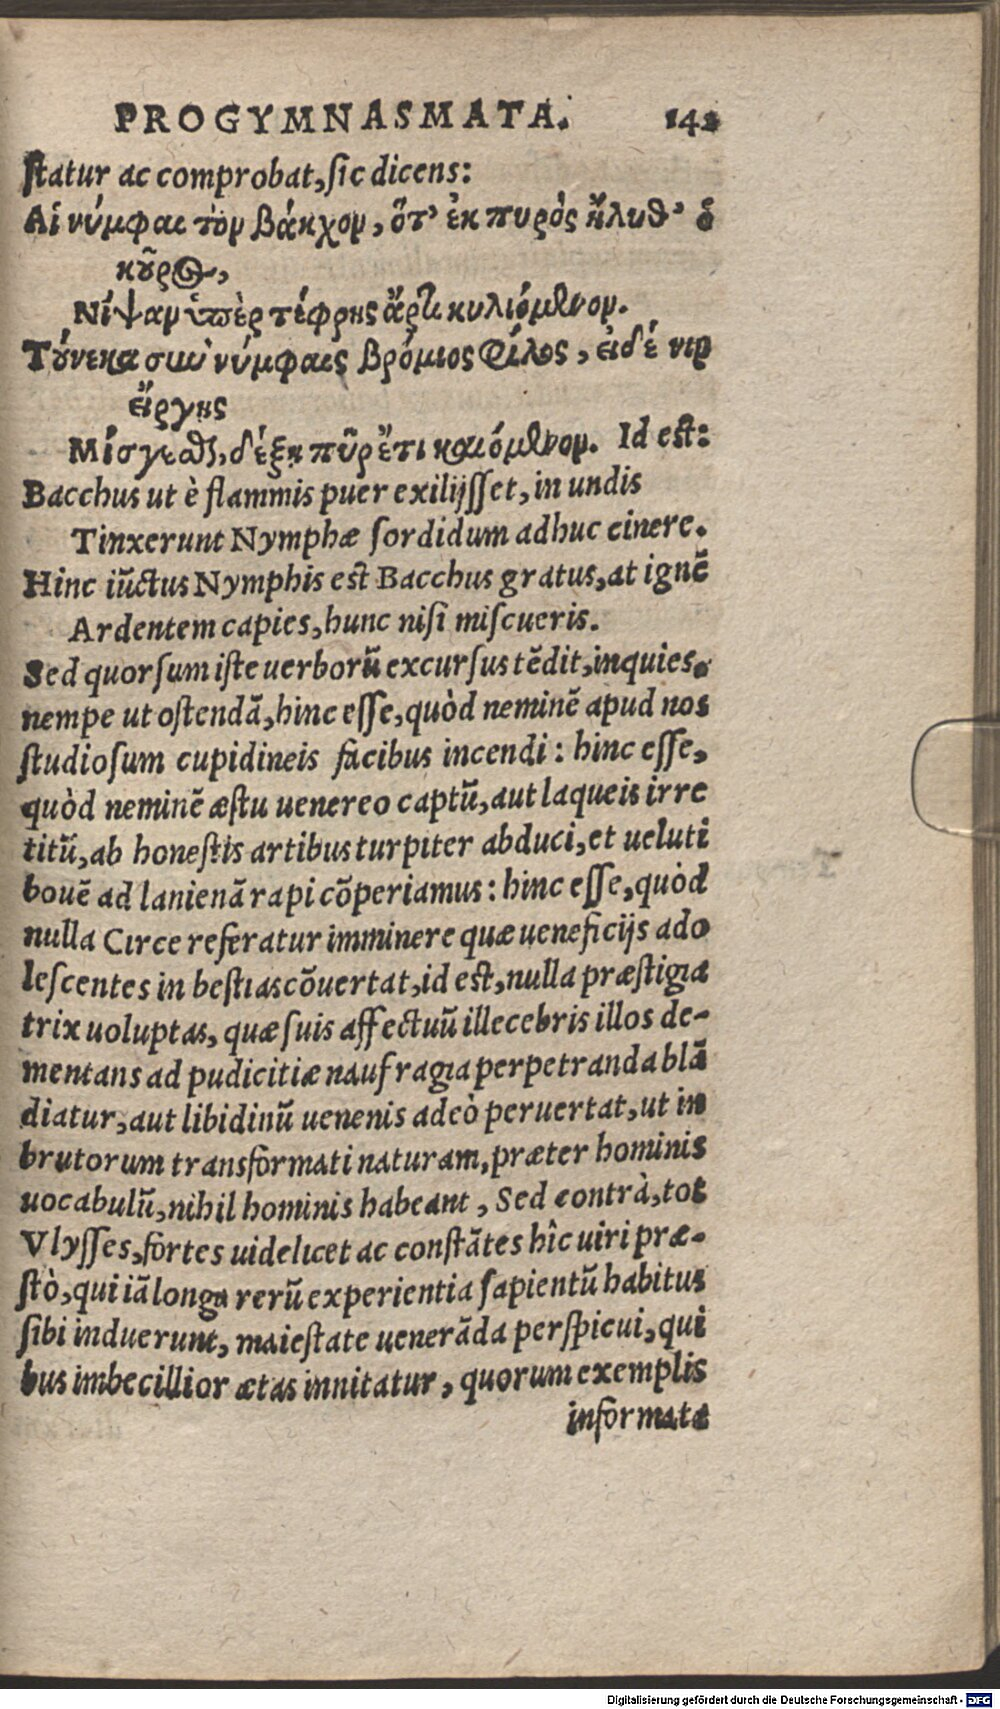 PROGYMNASMATA. 142
ſtatur ac comprobat, ſic dicens:
Αἱ νύμφαι τὸν βάκχον, ὅτ' ἐκ πυρὸς ἤλυθ' ὁ
κοῦρος,
Νίψαν ὑπὲρ τέφρης ἄρτι κυλιόμενον.
Τούνεκα σὺν νύμφαις βρόμιος φίλος, εἰ δέ νιν
εἴργης
Μίσγεσθαι, δέξῃ πῦρ ἔτι καιόμενον. Id eſt:
Bacchus ut è flammis puer exilijſſet, in undis
Tinxerunt Nymphæ ſordidum adhuc cinere.
Hinc iũctus Nymphis eſt Bacchus gratus, at ignẽ
Ardentem capies, hunc niſi miſcueris.
Sed quorſum iſte uerborũ excurſus tẽdit, inquies.
nempe ut oſtendã, hinc eſſe, quòd neminẽ apud nos
ſtudioſum cupidineis facibus incendi: hinc eſſe,
quòd neminẽ æſtu uenereo captũ, aut laqueis irre
titũ, ab honeſtis artibus turpiter abduci, et ueluti
bouẽ ad lanienã rapi cõperiamus: hinc eſſe, quòd
nulla Circe referatur imminere quæ ueneficijs ado
leſcentes in beſtias cõuertat, id eſt, nulla præſtigia
trix uoluptas, quæ ſuis affectuũ illecebris illos de-
mentans ad pudicitiæ naufragia perpetranda blã
diatur, aut libidinũ uenenis adeò peruertat, ut in
brutorum transformati naturam, præter hominis
uocabulũ, nihil hominis habeant, Sed contrà, tot
Vlyſſes, fortes uidelicet ac conſtãtes hîc uiri præ-
ſtò, qui iã longa rerũ experientia ſapientũ habitus
ſibi induerunt, maieſtate uenerãda perſpicui, qui
bus imbecillior ætas innitatur, quorum exemplis
informata
Digitalisierung gefördert durch die Deutsche Forschungsgemeinschaft - DFG